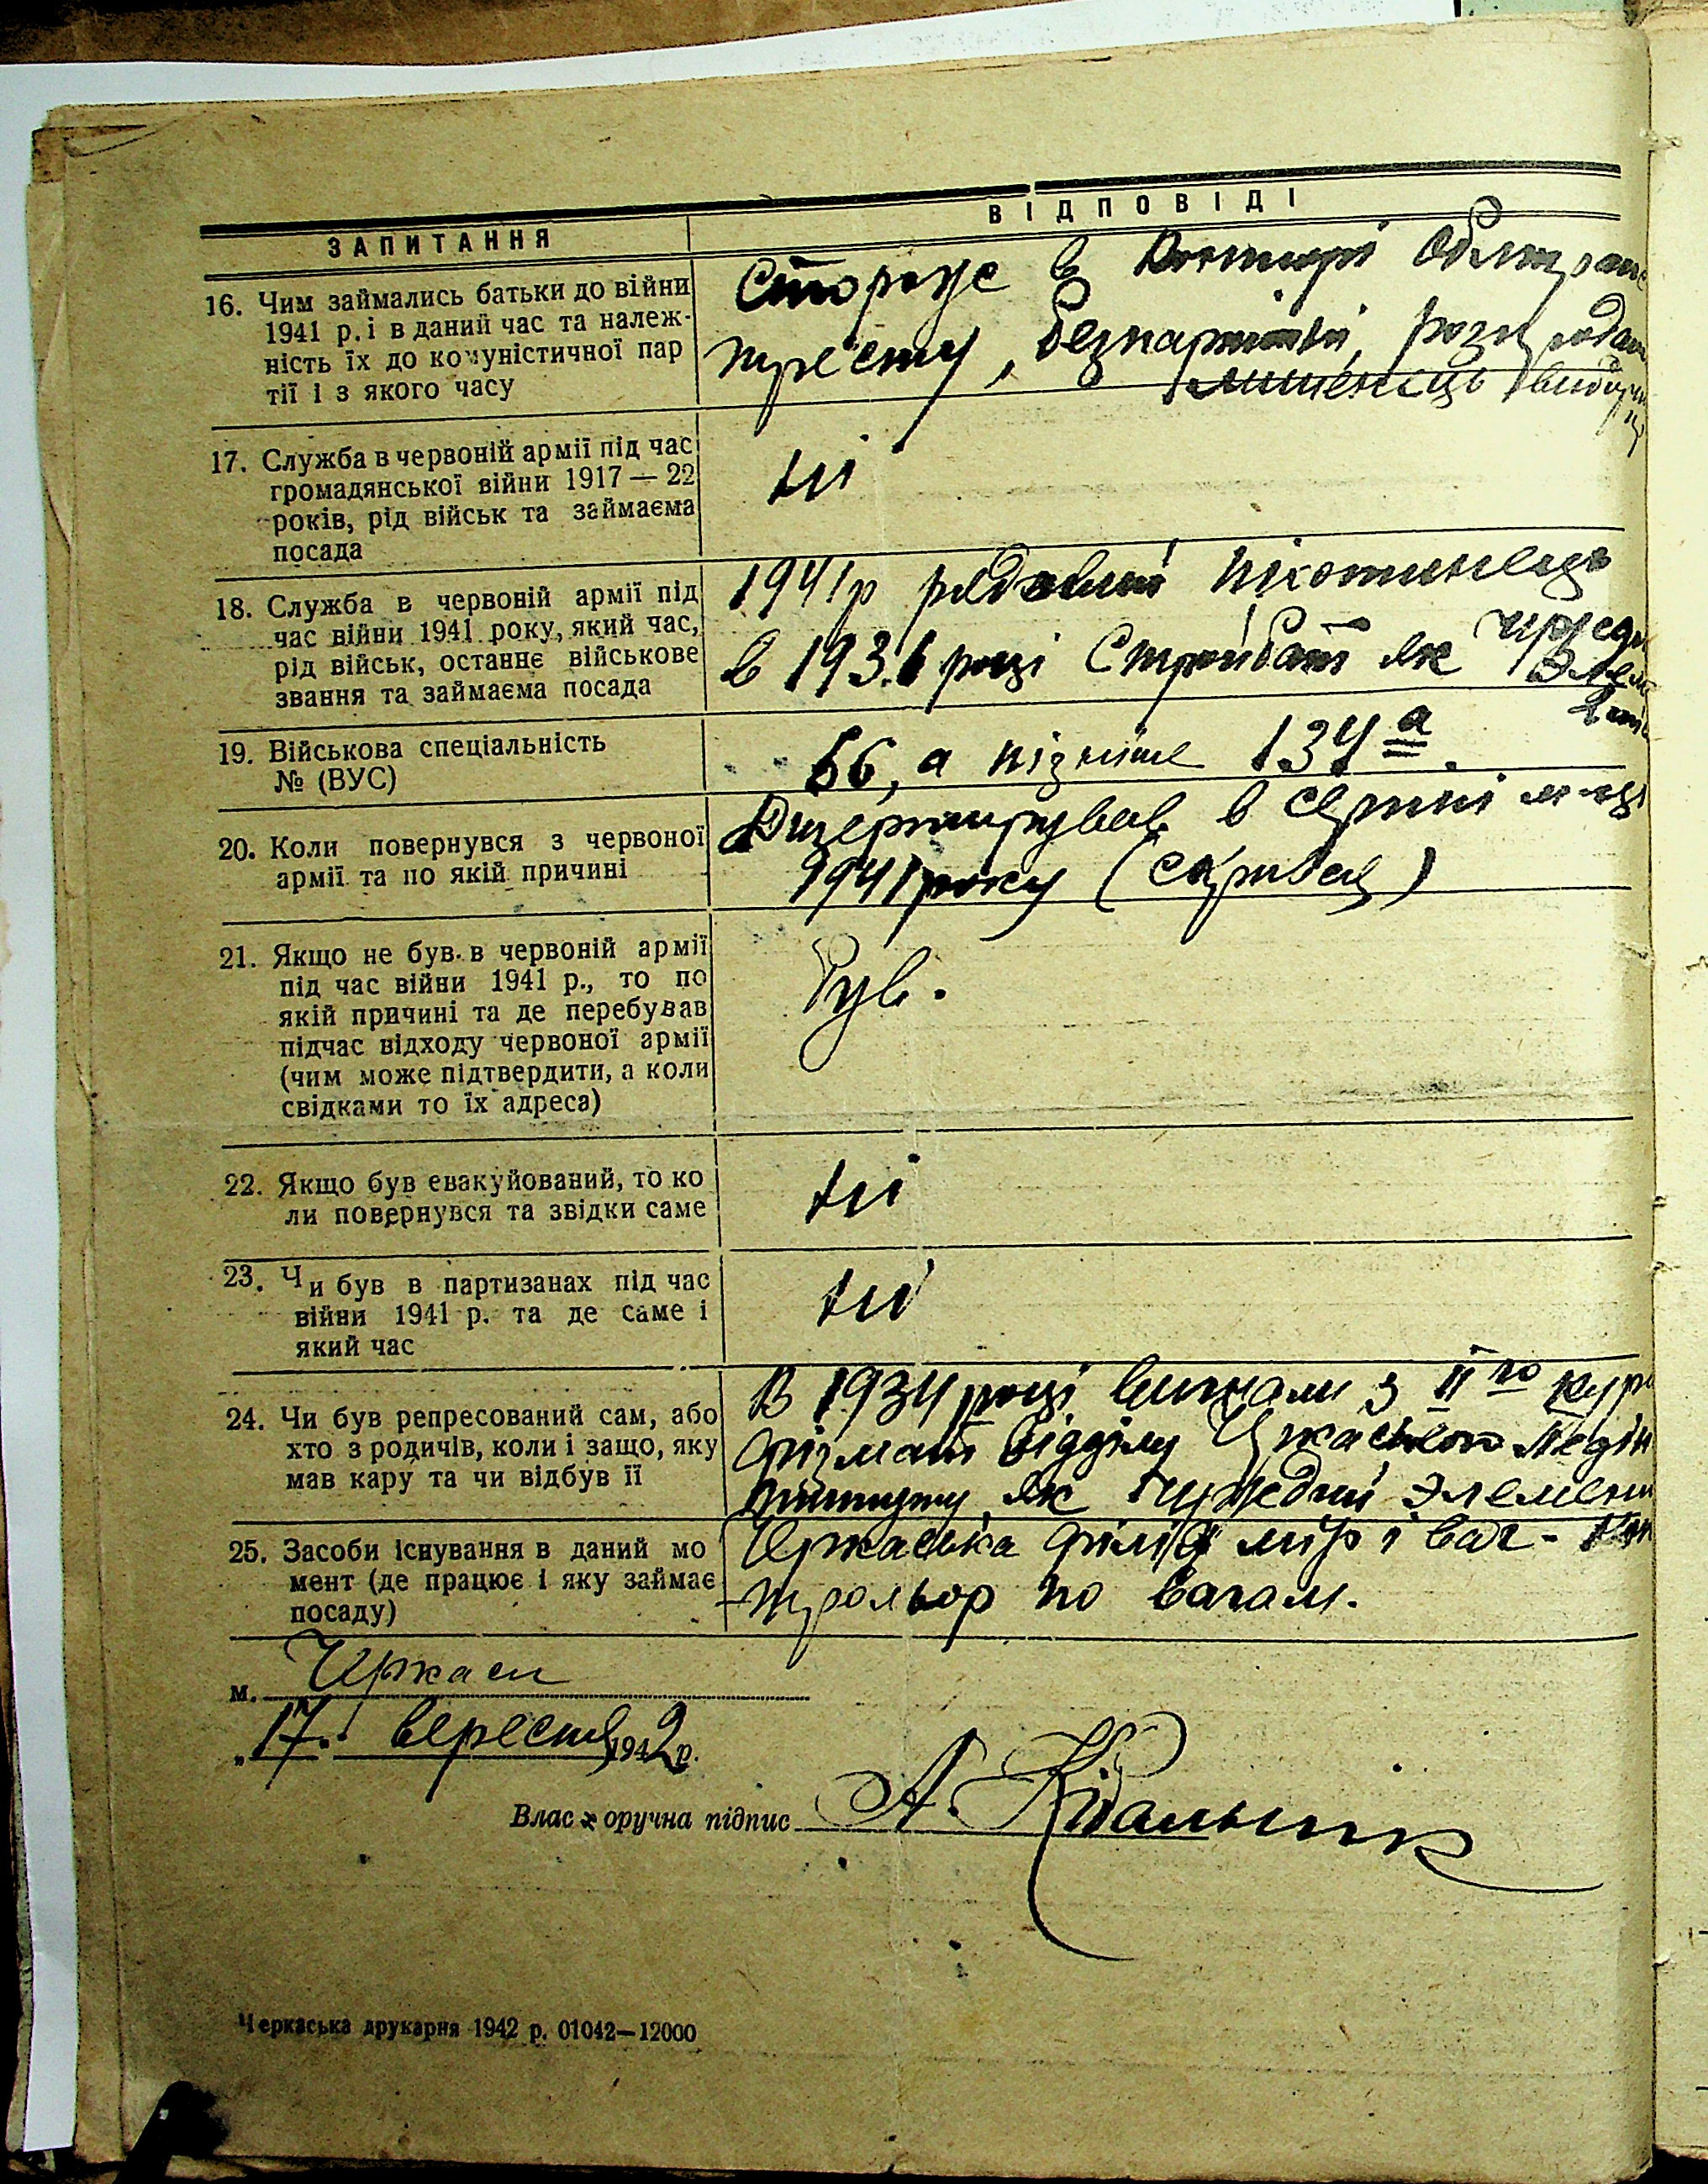 ЗАПИТАННЯ
ВІДПОВІДІ
16. Чим займались батьки до війни
1941 р. і в даний час та належ-
ність їх до комуністичної пар
тії і з якого часу
Стороже в
тресту, безпартійні,
17. Служба в червоній армії під час
громадянської війни 1917 — 22
років, рід військ та займаєма
посада
ні
18. Служба в червоній армії під
час війни 1941 року, який час,
рід військ, останнє військове
звання та займаєма посада
1941р рядовий
в 1936 році Стройбат як
19. Військова спеціальність
№ (ВУС)
66, а пізніше 134 а.
20. Коли повернувся з червоної
армії та по якій причині
Дизертирував в серпні м-ці
1941 року
21. Якщо не був в червоній армії
під час війни 1941 р., то по
якій причині та де перебував
підчас відходу червоної армії
(чим може підтвердити, а коли
свідками то їх адреса)
Був.
22. Якщо був евакуйований, то ко
ли повернувся та звідки саме
ні
23. Чи був в партизанах під час
війни 1941 р. та де саме і
який час
ні
24. Чи був репресований сам, або
хто з родичів, коли і защо, яку
мав кару та чи відбув її
В 1934 році вигнали з II го
фізмат відділу Педін
ституту, як чужедий элемент
25. Засоби існування в даний мо
мент (де працює і яку займає
посаду)
Черкаська філія мір і ваг - кон
трольор по вагам.
м. Черкаси
„17" вересня 1942 р.
Власноручна підпис А. Кідальник
Черкаська друкарня 1942 р. 01042—12000